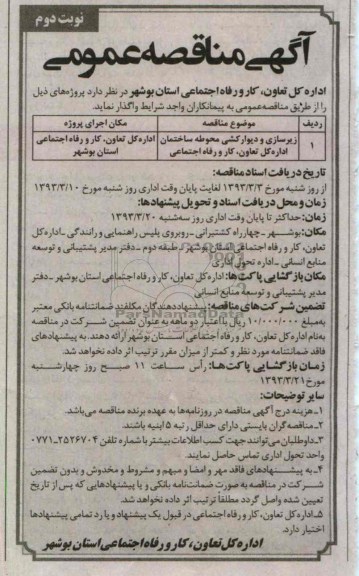 نوبت دوم
آگهی مناقصه عمومی
اداره کل تعاون، کار و رفاه اجتماعی استان بوشهر در نظر دارد پروژه‌های ذیل
را از طریق مناقصه عمومی به پیمانکاران واجد شرایط واگذار نماید.
ردیف موضوع مناقصه مکان اجرای پروژه
۱ زیرسازی و دیوارکشی محوطه ساختمان اداره کل تعاون، کار و رفاه اجتماعی
اداره کل تعاون، کار و رفاه اجتماعی استان بوشهر
تاریخ دریافت اسناد مناقصه:
از روز شنبه مورخ ۱۳۹۳/۳/۳ لغایت پایان وقت اداری روز شنبه مورخ ۱۳۹۳/۳/۱۰
زمان و محل دریافت اسناد و تحویل پیشنهادها:
زمان: حداکثر تا پایان وقت اداری روز سه‌شنبه ۱۳۹۳/۳/۲۰
مکان: بوشهر ـ چهارراه کشتیرانی ـ روبروی پلیس راهنمایی و رانندگی ـ اداره کل
تعاون، کار و رفاه اجتماعی استان بوشهر ـ طبقه دوم ـ دفتر مدیر پشتیبانی و توسعه
منابع انسانی ـ اداره تحول اداری
مکان بازگشایی پاکت‌ها: اداره کل تعاون، کار و رفاه اجتماعی استان بوشهر ـ دفتر
مدیر پشتیبانی و توسعه منابع انسانی
تضمین شرکت‌های مناقصه: پیشنهاددهندگان مکلفند ضمانتنامه بانکی معتبر
به مبلغ ۱۰/۰۰۰/۰۰۰ ریال با اعتبار دو ماهه به عنوان تضمین شرکت در مناقصه
به نام اداره کل تعاون، کار و رفاه اجتماعی استان بوشهر ارائه دهند. به پیشنهادهای
فاقد ضمانتنامه مورد نظر و کمتر از میزان مقرر ترتیب اثر داده نخواهد شد.
زمان بازگشایی پاکت‌ها: رأس ساعت ۱۱ صبح روز چهارشنبه
مورخ ۱۳۹۳/۳/۲۱
سایر توضیحات:
۱ـ هزینه درج آگهی مناقصه در روزنامه‌ها به عهده برنده مناقصه می‌باشد.
۲ـ مناقصه‌گران بایستی دارای حداقل رتبه ۵ ابنیه باشند.
۳ـ داوطلبان می‌توانند جهت کسب اطلاعات بیشتر با شماره تلفن ۲۵۲۶۷۰۴ـ۰۷۷۱
واحد تحول اداری تماس حاصل نمایند.
۴ـ به پیشنهادهای فاقد مهر و امضا و مبهم و مشروط و مخدوش و بدون تضمین
شرکت در مناقصه به صورت ضمانت‌نامه بانکی و یا پیشنهادهایی که پس از تاریخ
تعیین شده واصل گردد مطلقاً ترتیب اثر داده نخواهد شد.
۵ـ اداره کل تعاون، کار و رفاه اجتماعی در قبول یک پیشنهاد و یا رد تمامی پیشنهادها
اختیار دارد.
اداره کل تعاون، کار و رفاه اجتماعی استان بوشهر
ParsNamadData